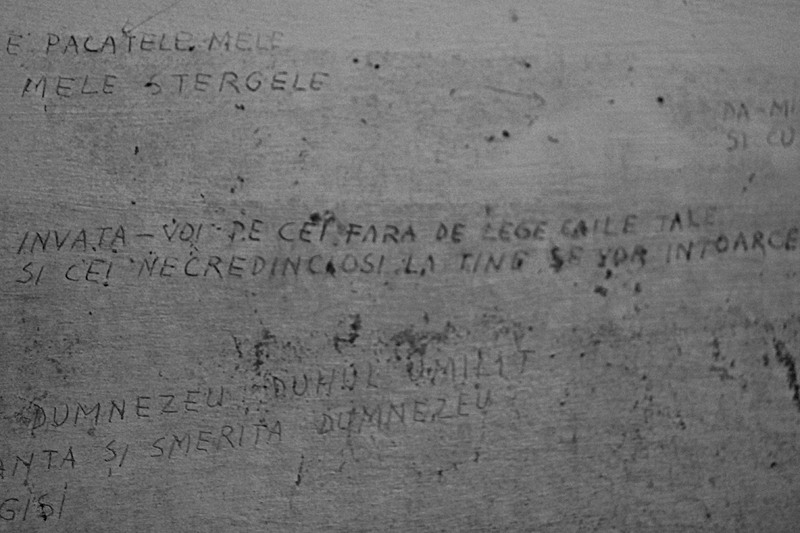 E PACATELE MELE
MELE STERGELE
DA-MI
SI CU
INVATA-VOI PE CEI FARA DE LEGE CAILE TALE
SI CEI NECREDINCIOSI LA TINE SE VOR INTOARCE
DUMNEZEU DUHUL UMILIT
ANTA ȘI SMERITA DUMNEZEU
GISI